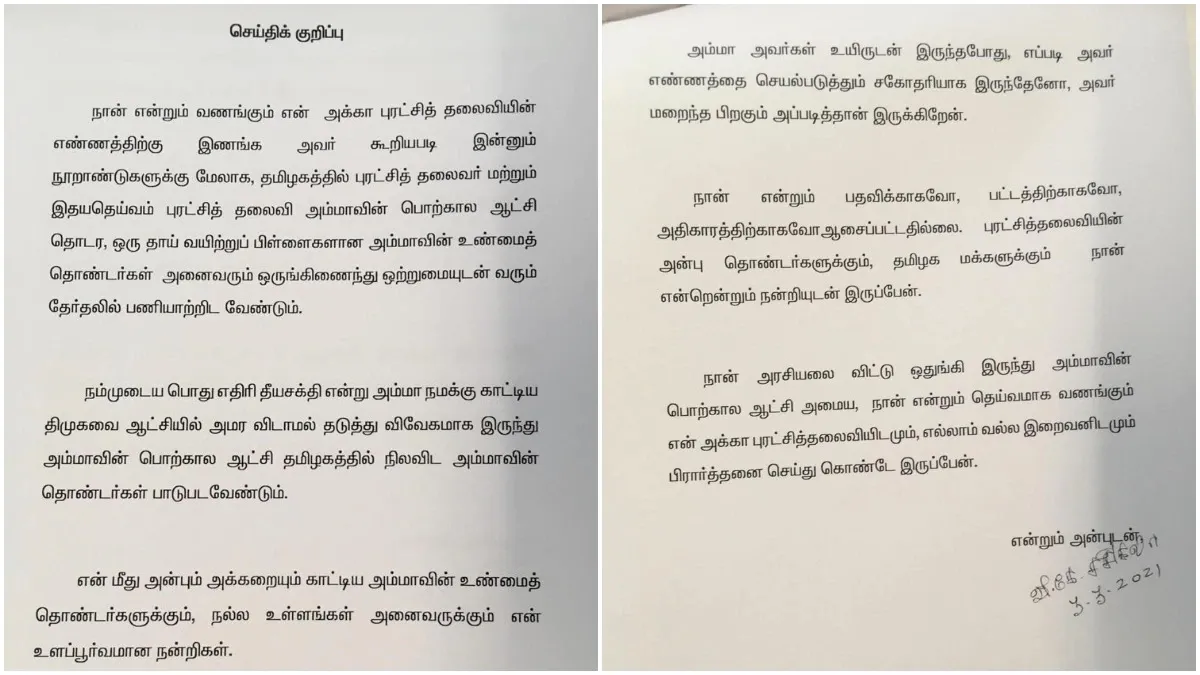 செய்திக் குறிப்பு
நான் என்றும் வணங்கும் என் அக்கா புரட்சித் தலைவியின்
எண்ணத்திற்கு இணங்க அவர் கூறியபடி இன்னும்
நூறாண்டுகளுக்கு மேலாக, தமிழகத்தில் புரட்சித் தலைவர் மற்றும்
இதயதெய்வம் புரட்சித் தலைவி அம்மாவின் பொற்கால ஆட்சி
தொடர, ஒரு தாய் வயிற்றுப் பிள்ளைகளான அம்மாவின் உண்மைத்
தொண்டர்கள் அனைவரும் ஒருங்கிணைந்து ஒற்றுமையுடன் வரும்
தேர்தலில் பணியாற்றிட வேண்டும்.
நம்முடைய பொது எதிரி தீயசக்தி என்று அம்மா நமக்கு காட்டிய
திமுகவை ஆட்சியில் அமர விடாமல் தடுத்து விவேகமாக இருந்து
அம்மாவின் பொற்கால ஆட்சி தமிழகத்தில் நிலவிட அம்மாவின்
தொண்டர்கள் பாடுபடவேண்டும்.
என் மீது அன்பும் அக்கறையும் காட்டிய அம்மாவின் உண்மைத்
தொண்டர்களுக்கும், நல்ல உள்ளங்கள் அனைவருக்கும் என்
உளப்பூர்வமான நன்றிகள்.
அம்மா அவர்கள் உயிருடன் இருந்தபோது, எப்படி அவர்
எண்ணத்தை செயல்படுத்தும் சகோதரியாக இருந்தேனோ, அவர்
மறைந்த பிறகும் அப்படித்தான் இருக்கிறேன்.
நான் என்றும் பதவிக்காகவோ, பட்டத்திற்காகவோ,
அதிகாரத்திற்காகவோஆசைப்பட்டதில்லை. புரட்சித்தலைவியின்
அன்பு தொண்டர்களுக்கும், தமிழக மக்களுக்கும் நான்
என்றென்றும் நன்றியுடன் இருப்பேன்.
நான் அரசியலை விட்டு ஒதுங்கி இருந்து அம்மாவின்
பொற்கால ஆட்சி அமைய, நான் என்றும் தெய்வமாக வணங்கும்
என் அக்கா புரட்சித்தலைவியிடமும், எல்லாம் வல்ல இறைவனிடமும்
பிரார்த்தனை செய்து கொண்டே இருப்பேன்.
என்றும் அன்புடன்,
வி.கே. சசிகலா
3.3.2021